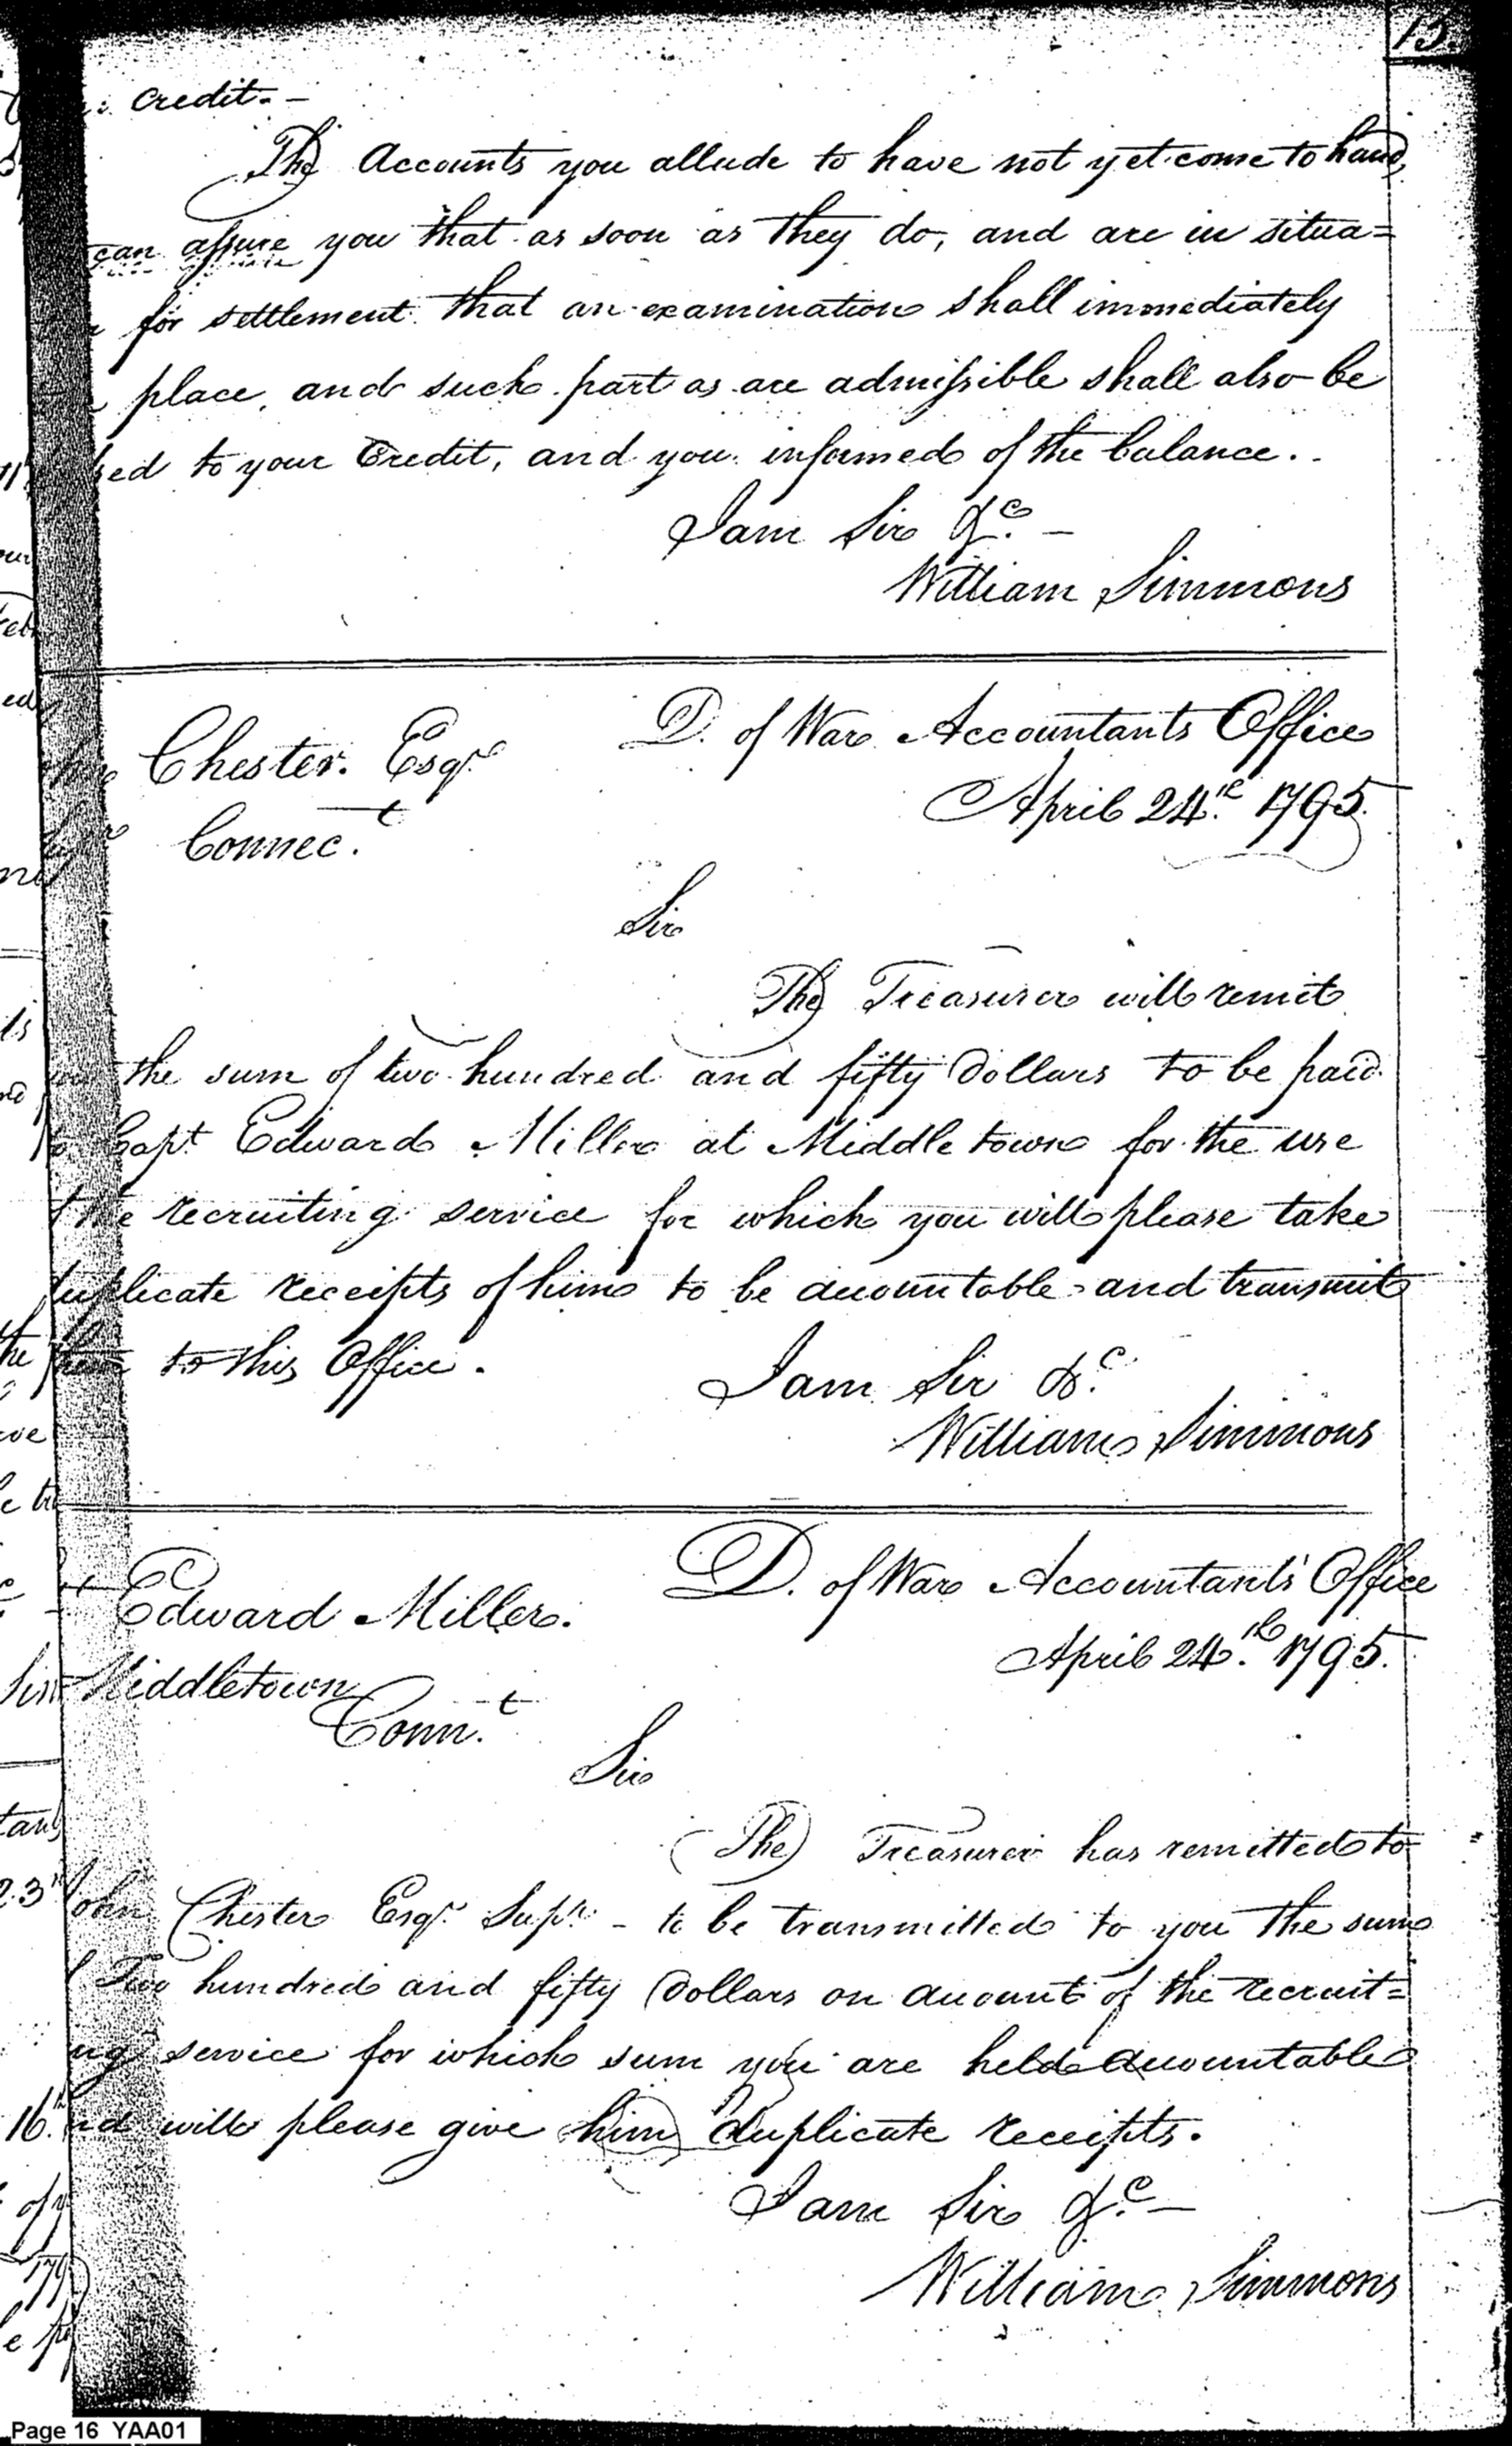 15
Credit. -
The Accounts you allude to have not yet come to hand,
can assure you that as soon as they do, and are in situa=
for settlement that an examination shall immediately
place, and such part as are admissible shall also be
sed to your Credit, and you informed of the balance. -
I am Sir &c. -
William Simmons
Chester. Esqr. D. of War Accountants Office
Connec.t April 24.th 1795.
Sir
The Treasurer will remit
the sum of two hundred and fifty Dollars to be paid
to Capt. Edward Miller at Middletown for the use
the recruiting service for which you will please take
duplicate receipts of him to be accountable and transmit
them to this Office.
I am Sir &c.
William Simmons
Edward Miller. D. of War Accountants Office
Middletown April 24.th 1795.
Conn.t
Sir
The Treasurer has remitted to
John Chester Esqr. Supr. - to be transmitted to you the sum
Two hundred and fifty Dollars on account of the recruit=
ing service for which sum you are held accountable
and will please give him duplicate receipts.
I am Sir &c. -
William Simmons
Page 16 YAA01